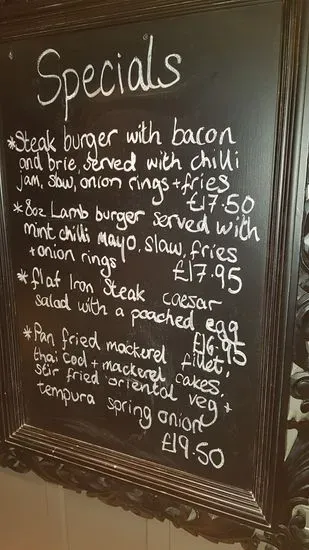 Specials
*Steak burger with bacon
and brie, served with chilli
jam, slaw, onion rings + fries
£17.50
*8oz Lamb burger served with
mint chilli mayo, slaw, fries
+ onion rings £17.95
*flat Iron Steak caesar
salad with a poached egg
£16.95
*Pan fried mackerel fillet,
thai cod + mackerel cakes,
stir fried oriental veg +
tempura spring onion
£19.50